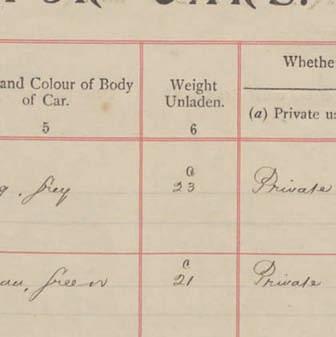 CARS.
and Colour of Body of Car.
Weight Unladen.
Whethe
(a) Private us
5
6
Grey
c
23
Private
Green
c
21
Private